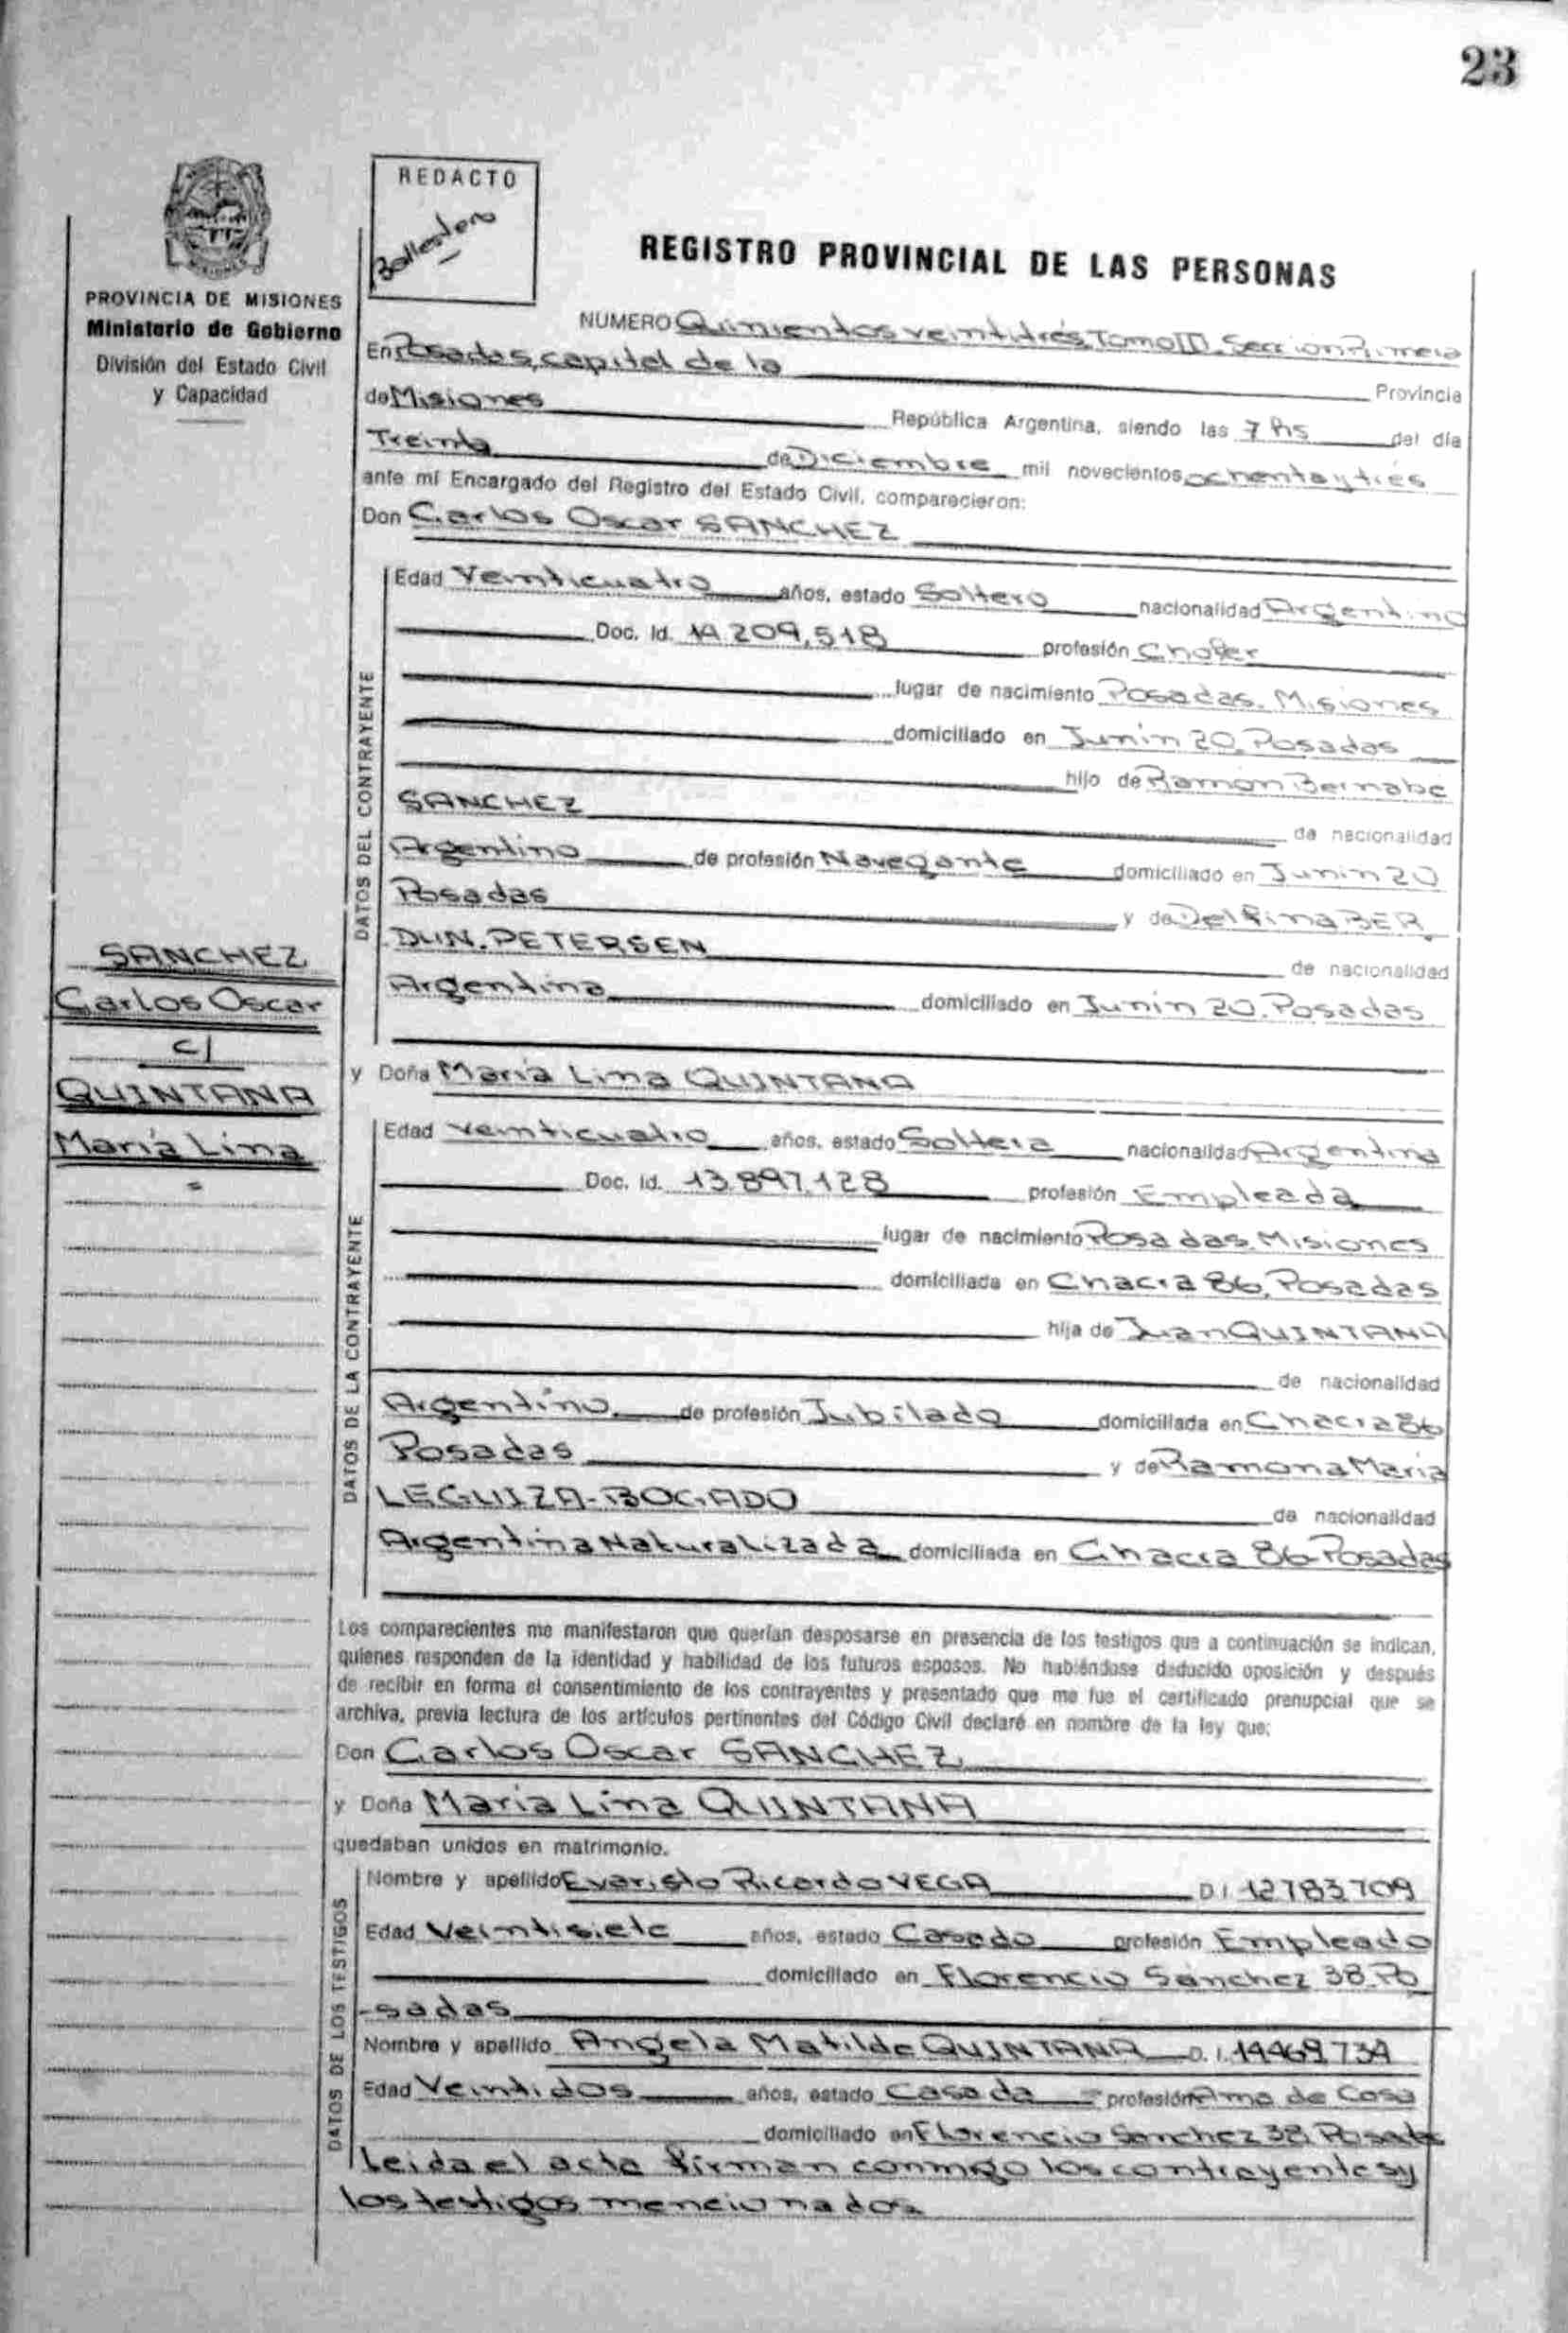 23
REDACTO
Ballestero
REGISTRO PROVINCIAL DE LAS PERSONAS
PROVINCIA DE MISIONES
Ministerio de Gobierno
División del Estado Civil
y Capacidad
NUMERO Quinientos veintitrés, Tomo III, Seccion Primera
En Posadas, capital de la Provincia
de Misiones República Argentina, siendo las 7 hs del día
Treinta de Diciembre mil novecientos ochenta y tres
ante mí Encargado del Registro del Estado Civil, comparecieron:
Don Carlos Oscar SANCHEZ
DATOS DEL CONTRAYENTE
Edad Veinticuatro años, estado Soltero nacionalidad Argentino
Doc. Id. 14.209.518 profesión Chofer
lugar de nacimiento Posadas. Misiones
domiciliado en Junin 20, Posadas
hijo de Ramón Bernabe
SANCHEZ de nacionalidad
Argentino de profesión Navegante domiciliado en Junin 20
Posadas y de Delfina BER
DUN. PETERSEN de nacionalidad
Argentina domiciliado en Junin 20. Posadas
SANCHEZ
Carlos Oscar
c/
QUINTANA
María Lina
y Doña María Lina QUINTANA
DATOS DE LA CONTRAYENTE
Edad Veinticuatro años, estado Soltera nacionalidad Argentina
Doc. Id. 13.897.128 profesión Empleada
lugar de nacimiento Posadas. Misiones
domiciliada en Chacra 86, Posadas
hija de Juan QUINTANA
de nacionalidad
Argentino de profesión Jubilado domiciliada en Chacra 86
Posadas y de Ramona María
LEGUIZA-BOGADO de nacionalidad
Argentina Naturalizada domiciliada en Chacra 86 Posadas
Los comparecientes me manifestaron que querían desposarse en presencia de los testigos que a continuación se indican,
quienes responden de la identidad y habilidad de los futuros esposos. No habiéndose deducido oposición y después
de recibir en forma el consentimiento de los contrayentes y presentado que me fue el certificado prenupcial que se
archiva, previa lectura de los artículos pertinentes del Código Civil declaré en nombre de la ley que:
Don Carlos Oscar SANCHEZ
y Doña María Lina QUINTANA
quedaban unidos en matrimonio.
DATOS DE LOS TESTIGOS
Nombre y apellido Evaristo Ricardo VEGA D I 12783709
Edad Veintisiete años, estado Casado profesión Empleado
domiciliado en Florencio Sanchez 38. Po
-sadas
Nombre y apellido Angela Matilde QUINTANA D. I. 14469734
Edad Veintidos años, estado Casada profesión Ama de Casa
domiciliado en Florencio Sanchez 38, Posadas
Leida el acta firman conmigo los contrayentes y
los testigos mencionados